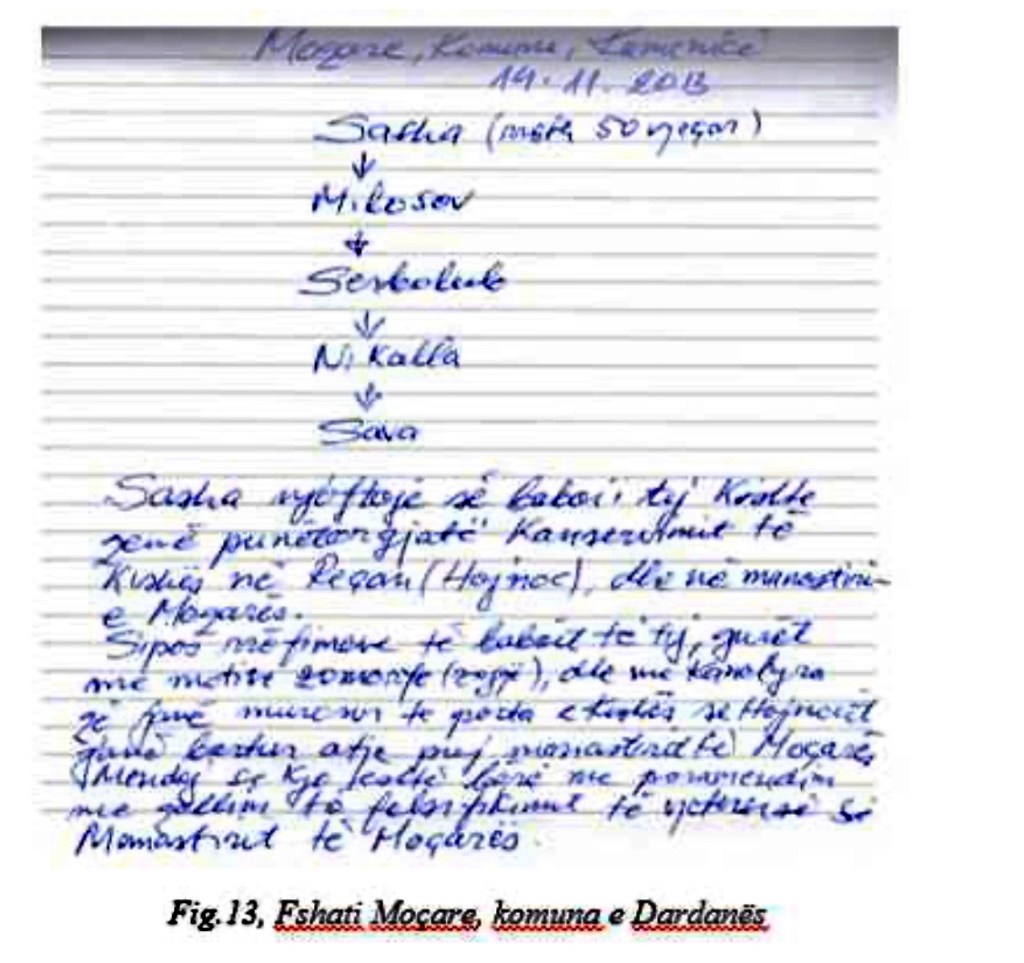 Moçare, Komuna, Kamenicë
14.11.2013
Sasha (rreth 50 vjeçar)
↓
Milosov
↓
Serbolub
↓
Nikolla
↓
Sava
Sasha njoftoje së babai i tij Kishte
qenë punëtor gjatë Konservimit të
Kishës në Reçan (Hojnoc), dhe në manastirin
e Moçarës.
Sipas rrëfimeve të babait të tij, gurët
me motive zomorfe (zogjë), dhe me
që janë murosur te porta e kishës së Hojnocit
janë bartur atje prej monastirit të Moçarës
Mendoj se kjo është bërë me
me qëllim të falsifikimit të vjetërsisë së
Monastirit të Moçarës.
Fig.13, Fshati Moçare, komuna e Dardanës